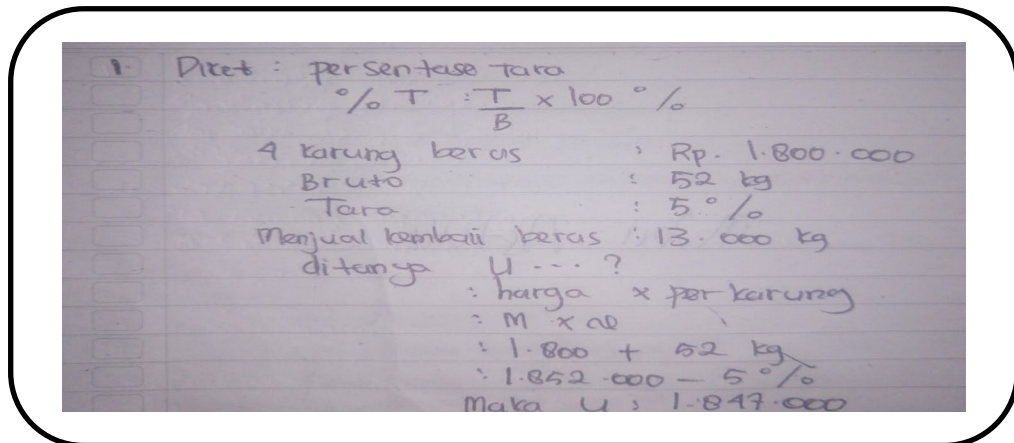 1. Diket : persentase tara
% T : T/B × 100 %
4 karung beras : Rp. 1.800.000
Bruto : 52 kg
Tara : 5 %
Menjual kembali beras : 13.000 kg
ditanya U ... ?
: harga × per karung
: M ×
: 1.800 + 52 kg
: 1.852.000 - 5 %
Maka U : 1.847.000